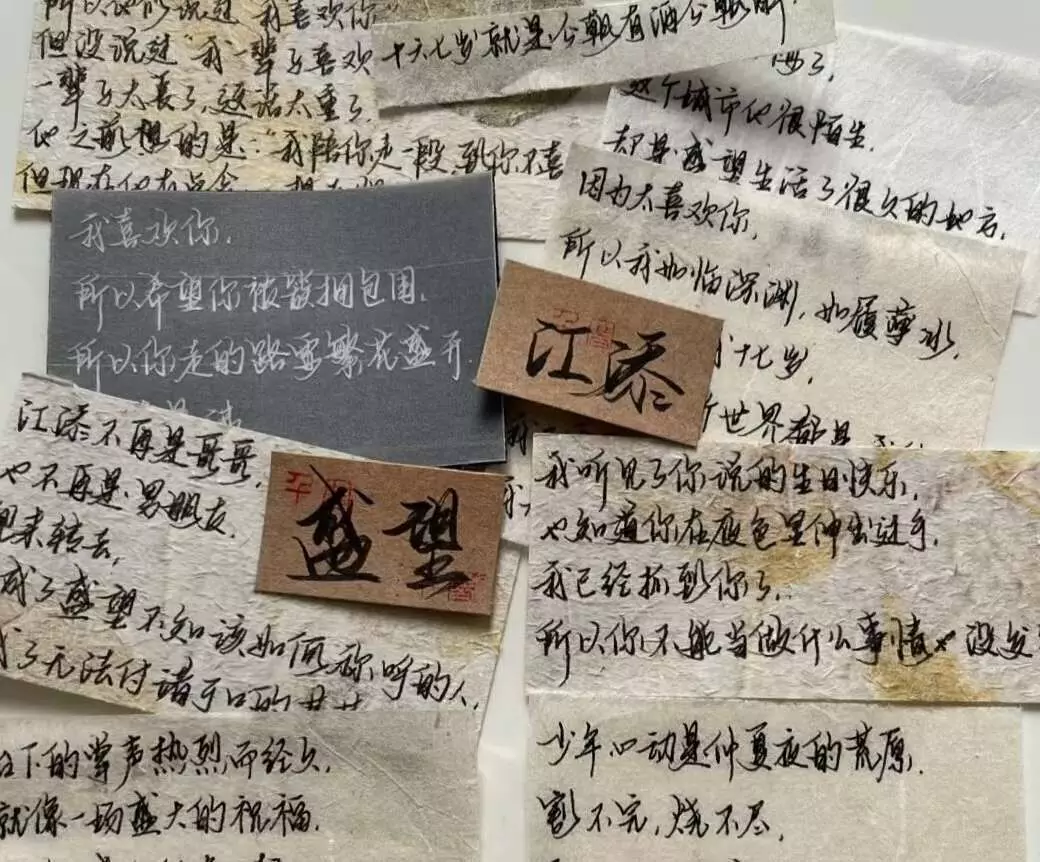 所以他们说过“我喜欢你”
但没说过“我一辈子喜欢
一辈子太长了，这话太重了，
他之前想的是：“我陪你走一段，到你不喜
但现在他有点贪
十六七岁就是今朝有酒今朝醉，
这个城市他很陌生，
却是盛望生活了很久的地方，
因为太喜欢你，
所以我如临深渊，如履薄冰，
十七岁，
世界都是
我喜欢你，
所以希望你被簇拥包围，
所以你走的路要繁花盛开，
江添
江添不再是哥哥，
也不再是男朋友，
来转去，
成了盛望不知该如何称呼的人，
成了无法付诸于口的
盛望
我听见了你说的生日快乐，
也知道你在夜色里伸出过手，
我已经抓到你了，
所以你不能当做什么事情×没发
台下的掌声热烈而经久，
就像一场盛大的祝福，
少年心动是仲夏夜的荒原，
割不完，烧不尽，